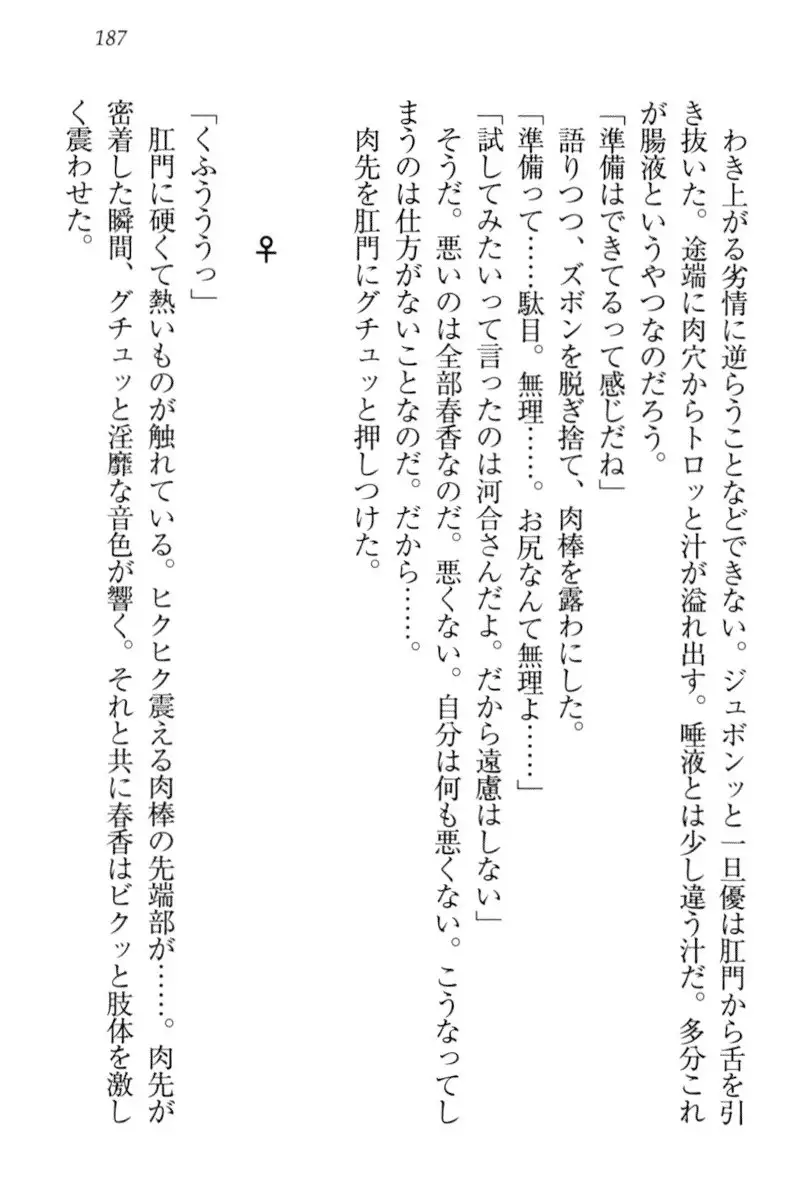 187
わき上がる劣情に逆らうことなどできない。ジュボンッと一旦優は肛門から舌を引
き抜いた。途端に肉穴からトロッと汁が溢れ出す。唾液とは少し違う汁だ。多分これ
が腸液というやつなのだろう。
「準備はできてるって感じだね」
語りつつ、ズボンを脱ぎ捨て、肉棒を露わにした。
「準備って……駄目。無理……。お尻なんて無理よ……」
「試してみたいって言ったのは河合さんだよ。だから遠慮はしない」
そうだ。悪いのは全部春香なのだ。悪くない。自分は何も悪くない。こうなってし
まうのは仕方がないことなのだ。だから……。
肉先を肛門にグチュッと押しつけた。
♀
「くふうううっ」
肛門に硬くて熱いものが触れている。ヒクヒク震える肉棒の先端部が……。肉先が
密着した瞬間、グチュッと淫靡な音色が響く。それと共に春香はビクッと肢体を激し
く震わせた。